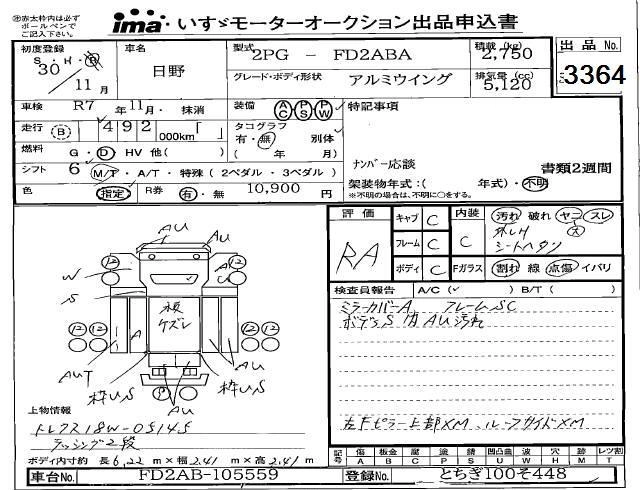 ㊟赤太枠内は必ず
ボールペンで
ご記入下さい。
ima いすゞモーターオークション出品申込書
初度登録 S・H・R 30年 11月
車名 日野
型式 2PG - FD2ABA
積載 (kg) 2,750
グレード・ボディ形状 アルミウイング
排気量(cc) 5,120
出品 No.
3364
車検 R7年 11月・抹消
装備 AC PS PW
特記事項
走行 (B) 492 000km「 」
タコグラフ 有・無 別体 ( 年 月)
燃料 G・D HV 他( )
シフト 6 M/T・A/T・特殊(2ペダル・3ペダル)
ナンバー応談
書類2週間
架装物年式:( 年式)・不明
※不明の場合は、不明に○をする。
色 指定 R券 有・無 10,900 円
評価 RA
キャブ C
フレーム C
ボディ C
内装 C
汚れ 破れ ヤニ スレ
大
シートヘタリ
Fガラス 割れ 線 点傷 イバリ
AU
AU
12
12
W
A
S
AU
荷板
ケズレ
12 12
12 12
A
AUT
AU
枠US
枠US
AU
検査員報告 A/C(✓ ) B/T( )
ミラーカバーA フレームSC
ボデーS内AU汚れ
左Fピラー上部XM ルーフサイドXM
上物情報
トレクス18W-05145
ラッシング2段
ボディ内寸約 長 6.22 m×幅 2.41 m×高 2.41 m
記号 傷 A 板金 B 腐 C 塗 P 錆 S 凹凸曲 U 波 W 穴 H 跡 M レツ割 T
車台No. FD2AB-105559
登録No. とちぎ100そ448